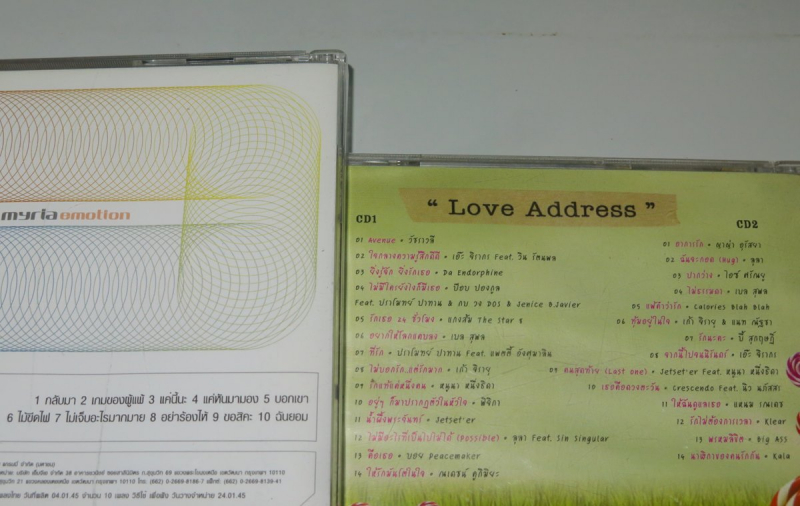 myria emotion
1 กลับมา 2 เกมของผู้แพ้ 3 แค่นี้นะ 4 แค่หันมามอง 5 บอกเขา
6 ไม้ขีดไฟ 7 ไม่เจ็บอะไรมากมาย 8 อย่าร้องไห้ 9 ขอสิคะ 10 ฉันยอม
วันที่ผลิต 04.01.45 จำนวน 10 เพลง วันวางจำหน่าย 24.01.45
" Love Address "
CD1
01 Avenue • วัชราวลี
02 ใจกลางความรู้สึกดีดี • เอ๊ะ จิรากร Feat. วิน รัตนพล
03 ยิ่งรู้จัก ยิ่งรักเธอ • Da Endorphine
04 ไม่มีใครยังไงก็มีเธอ • ป๊อบ ปองกูล
Feat. ปราโมทย์ ปาทาน & กบ วง DOS & Jenice B.Javier
05 รักเธอ 24 ชั่วโมง • แกงส้ม The Star 8
06 อยากให้โลกแคบลง • เบล สุพล
07 ที่รัก • ปราโมทย์ ปาทาน Feat. แพตตี้ อังศุมาลิน
08 ไม่บอกรัก..แต่รักมาก • เก้า จิรายุ
09 รักแท้แค่หนึ่งคน • หนูนา หนึ่งธิดา
10 อยู่ๆ ก็มาปรากฏตัวในหัวใจ • พิจิกา
11 น้ำผึ้งพระจันทร์ • Jetset'er
12 ไม่มีอะไรที่เป็นไปไม่ได้ (Possible) • ลุลา Feat. Sin Singular
13 คือเธอ • บอย Peacemaker
14 ให้รักมันโตในใจ • ณเดชน์ คูกิมิยะ
CD2
01 อาการรัก • ญาญ่า อุรัสยา
02 ฉันจะกอด (Hug) • ลุลา
03 ปากว่าง • ไอซ์ ศรัณยู
04 ไม่ธรรมดา • เบล สุพล
05 แพ้คำว่ารัก • Calories Blah Blah
06 ทุ้มอยู่ในใจ • เก้า จิรายุ & แนท ณัฐชา
07 รักนะคะ • บี้ สุกฤษฎิ์
08 จากนี้ไปจนนิรันดร์ • เอ๊ะ จิรากร
09 คนสุดท้าย (Last one) • Jetset'er Feat. หนูนา หนึ่งธิดา
10 เธอคือดวงตะวัน • Crescendo Feat. นิว นภัสสร
11 ให้ฉันดูแลเธอ • แหนม รณเดช
12 รักไม่ต้องการเวลา • Klear
13 พรหมลิขิต • Big Ass
14 นาฬิกาของคนรักกัน • Kala